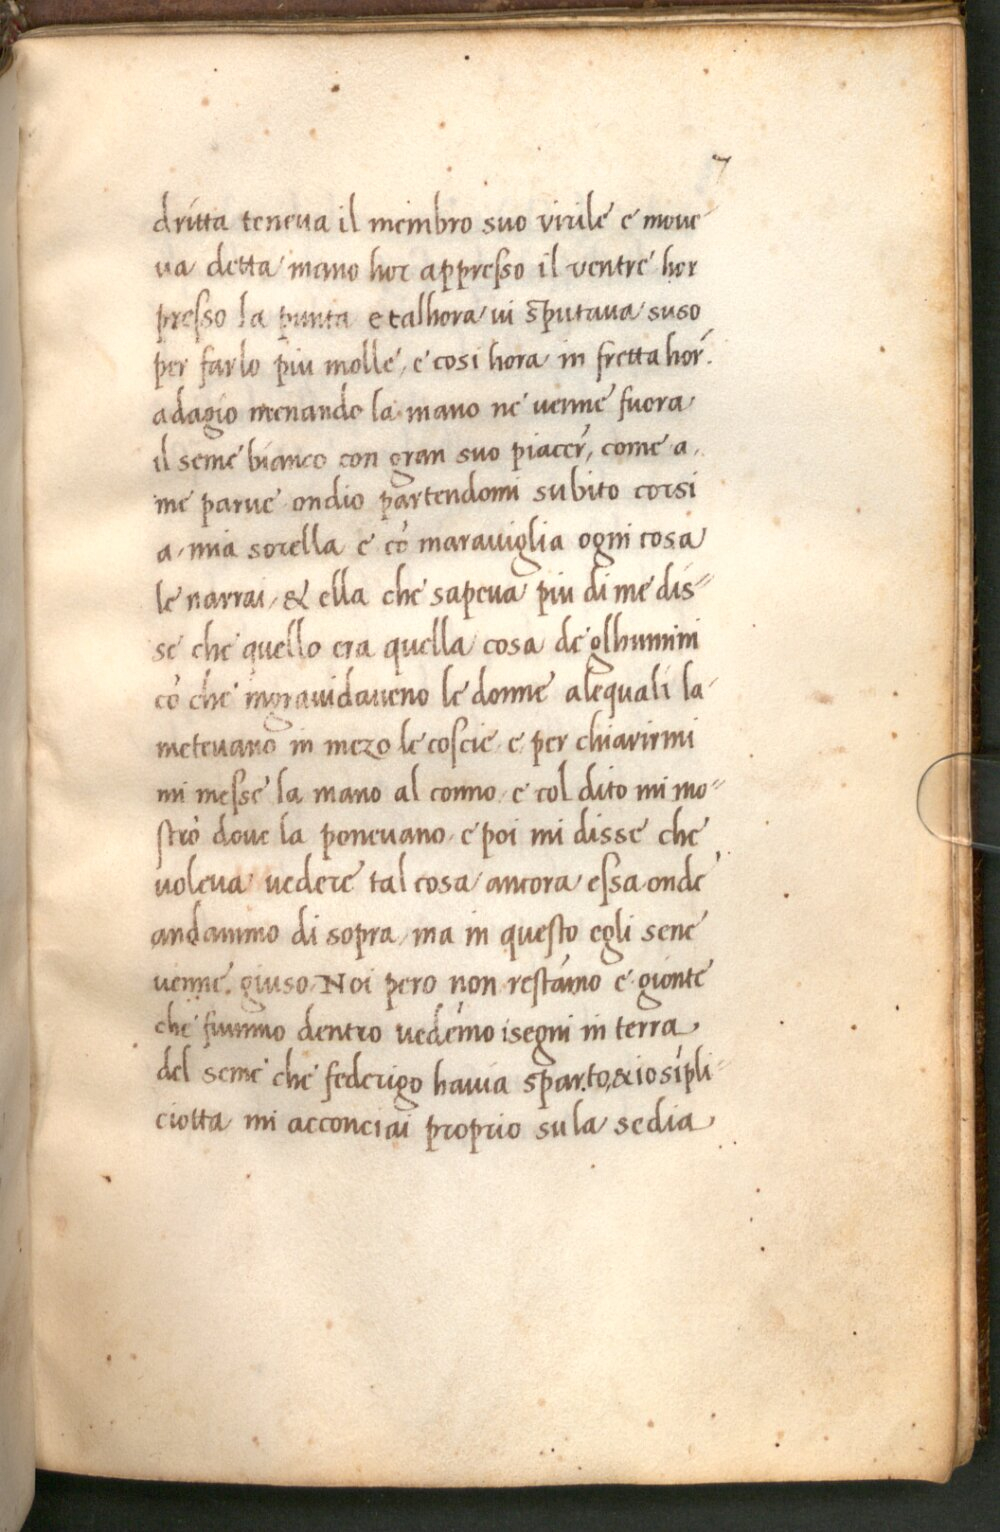 7
dritta teneua il membro suo virile e moue
ua detta mano hor appresso il ventre hor
presso la punta e talhora ui sputaua suso
per farlo piu molle, e cosi hora in fretta hor.
adagio menando la mano ne venne fuora
il seme bianco con gran suo piacer, come a
me parue ondio partendomi subito corsi
a mia sorella e cō marauiglia ogni cosa
le narrai, & ella che sapeua piu di me dis=
se che quello era quella cosa de glhumini
cō che ingrauidaueno le donne alequali la
meteuano in mezo le coscie e per chiarirmi
mi messe la mano al conno e col dito mi mo=
strò doue la poneuano e poi mi disse che
uoleua uedere tal cosa ancora essa onde
andammo di sopra, ma in questo egli sene
uenne. giuso. Noi pero non restāmo e gionte
che fummo dentro uedēmo isegni in terra
del seme che federigo hauia sparto, & io sīpli
ciotta mi acconciai proprio su la sedia